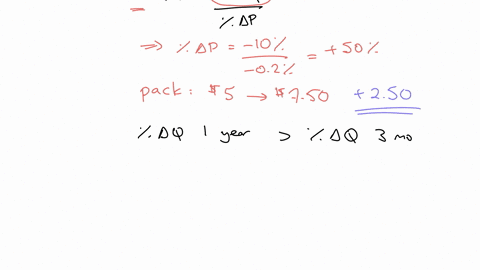 =
% ΔP
⇒ % ΔP = -10% / -0.2% = +50%
pack: $5 → $7.50 +2.50
% ΔQ 1 year > % ΔQ 3 mo